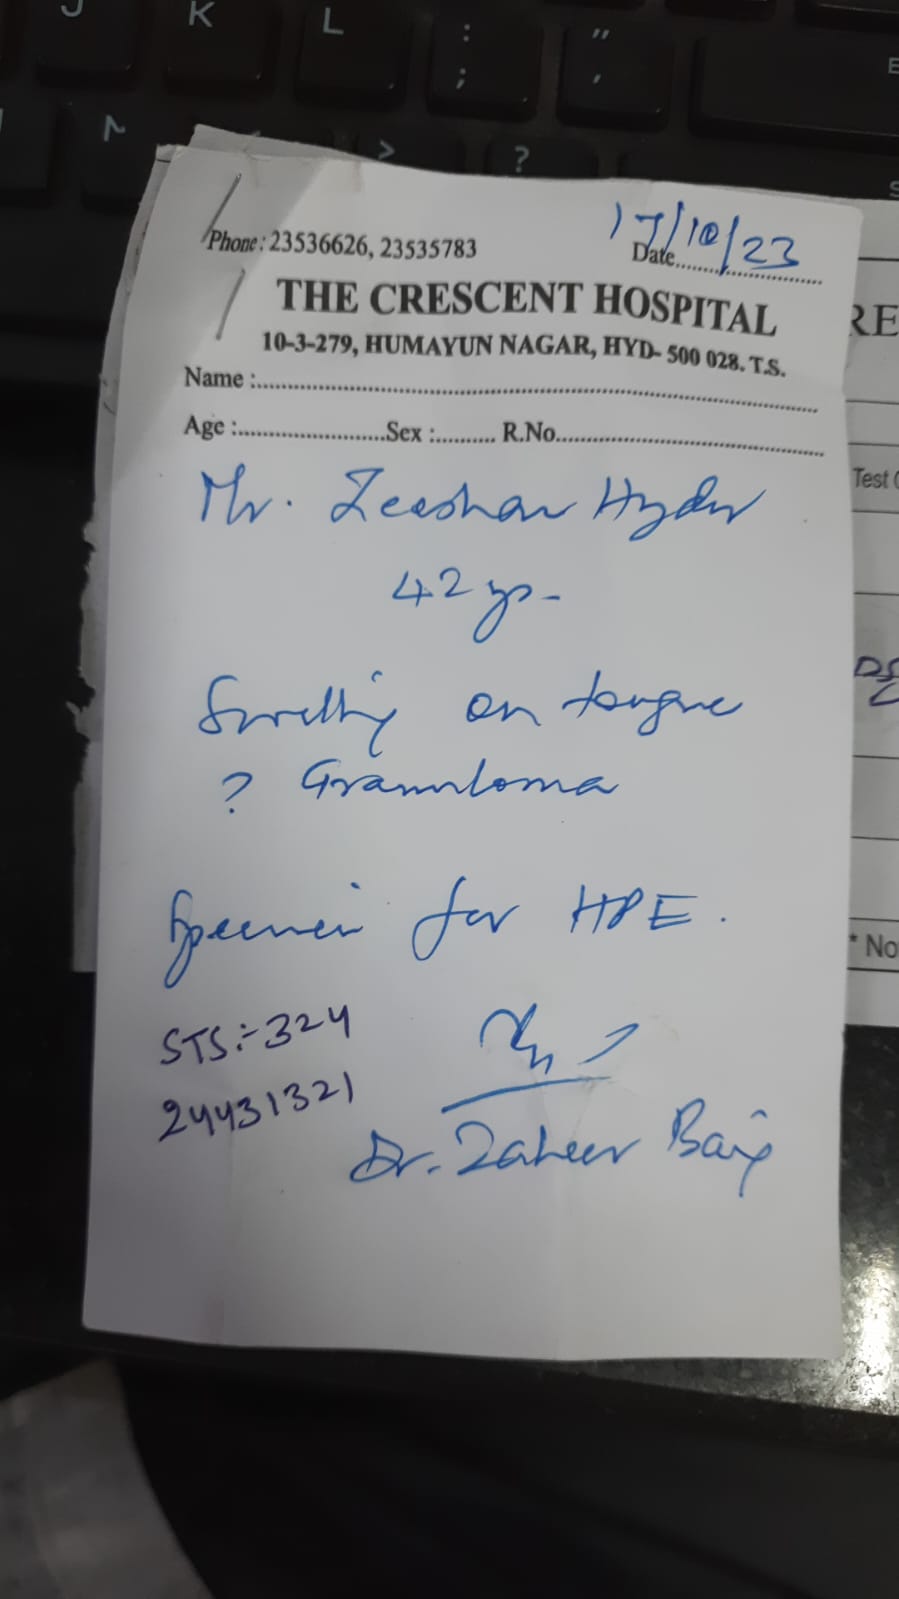 J K L : ;
" ,
> ?
Phone : 23536626, 23535783
17/10/23
Date
THE CRESCENT HOSPITAL
10-3-279, HUMAYUN NAGAR, HYD- 500 028. T.S.
Name :
Age : Sex : R.No.
Mr. Zeeshan Hyder
42 yrs-
Swelling on tongue
? Granuloma
Specimen for HPE.
STS:-324
24431321
Dr. Zaheer Baig
RE
Test
* No